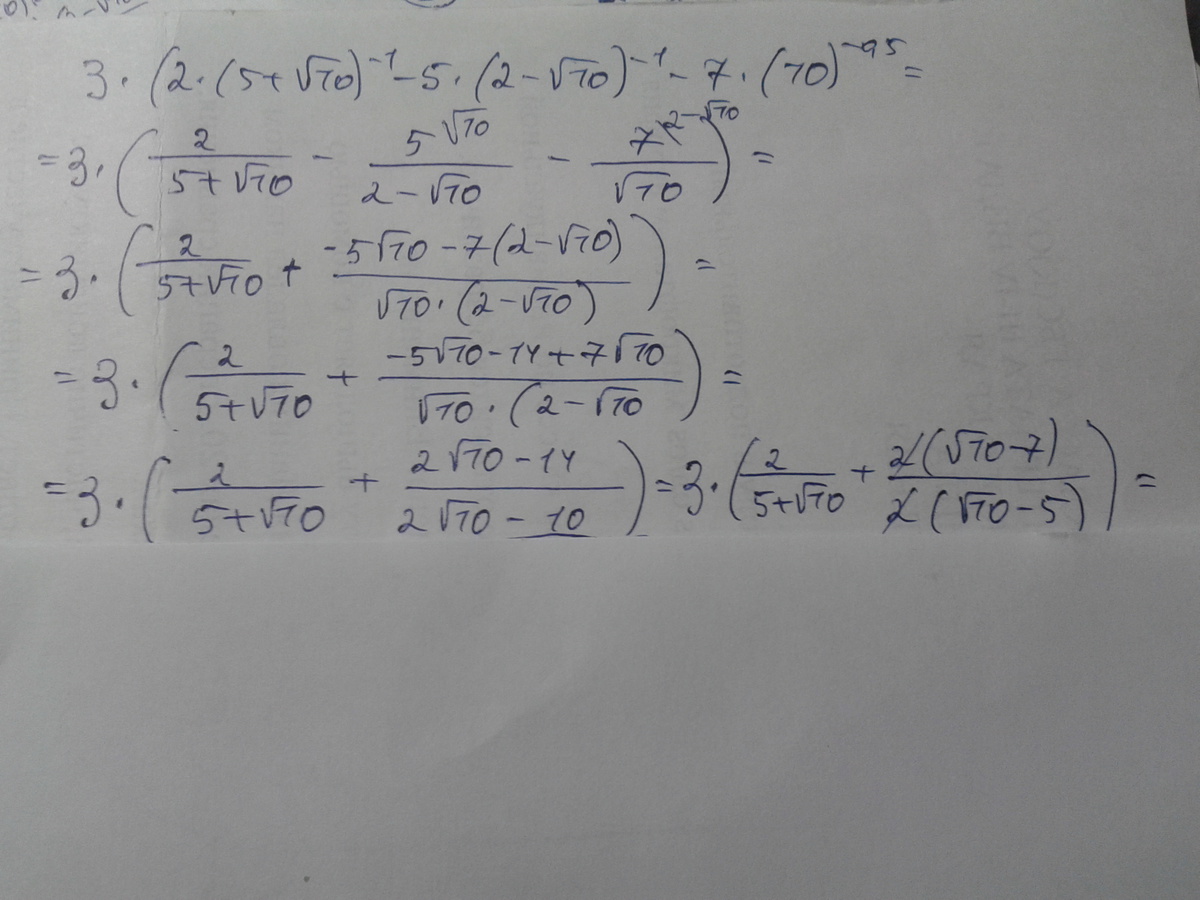 3·(2·(5+√10)^-1 - 5·(2-√10)^-1 - 7·(10)^-0,5 =
=3·(2/(5+√10) - 5^√10/(2-√10) - 7^\2-√10/√10) =
=3·(2/(5+√10) + (-5√10-7(2-√10))/(√10·(2-√10))) =
=3·(2/(5+√10) + (-5√10-14+7√10)/(√10·(2-√10)) =
=3·(2/(5+√10) + (2√10-14)/(2√10-10)) = 3·(2/(5+√10) + 2(√10-7)/2(√10-5)) =